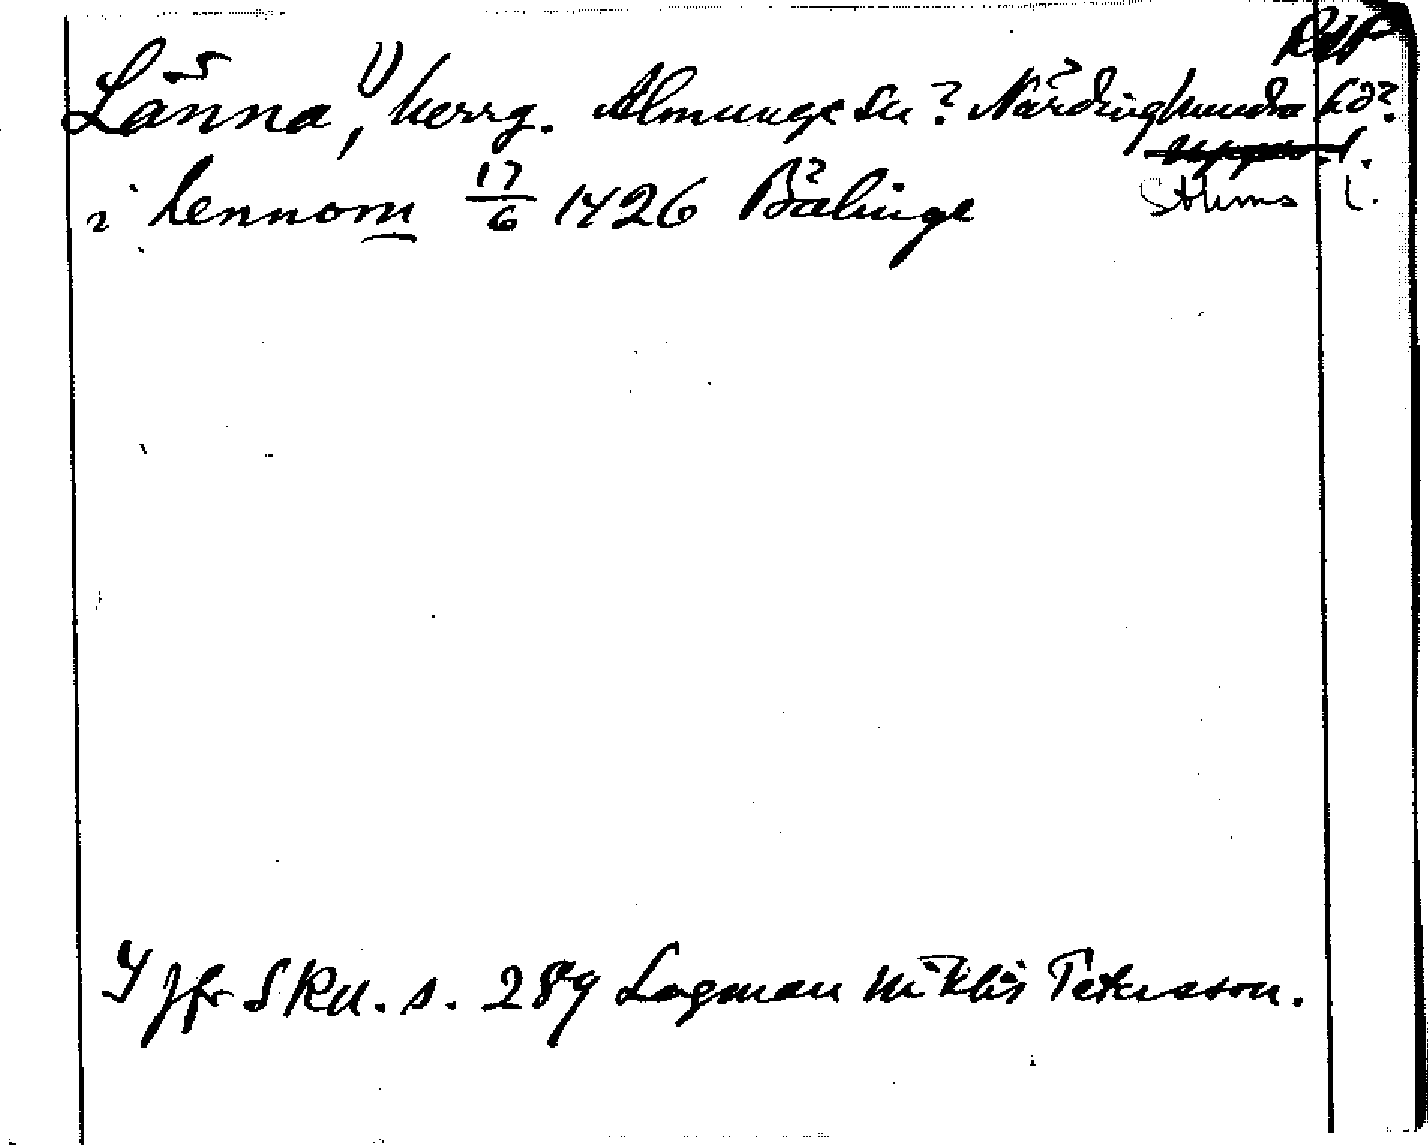 Länna,¹⁾ herrg. Almunge sn? Närdinghundra hd?
Sthlms l.
i Lennom 17/6 1426 Bälinge
1) Jfr SRU. s. 289 Lagman Niklis Petersson.